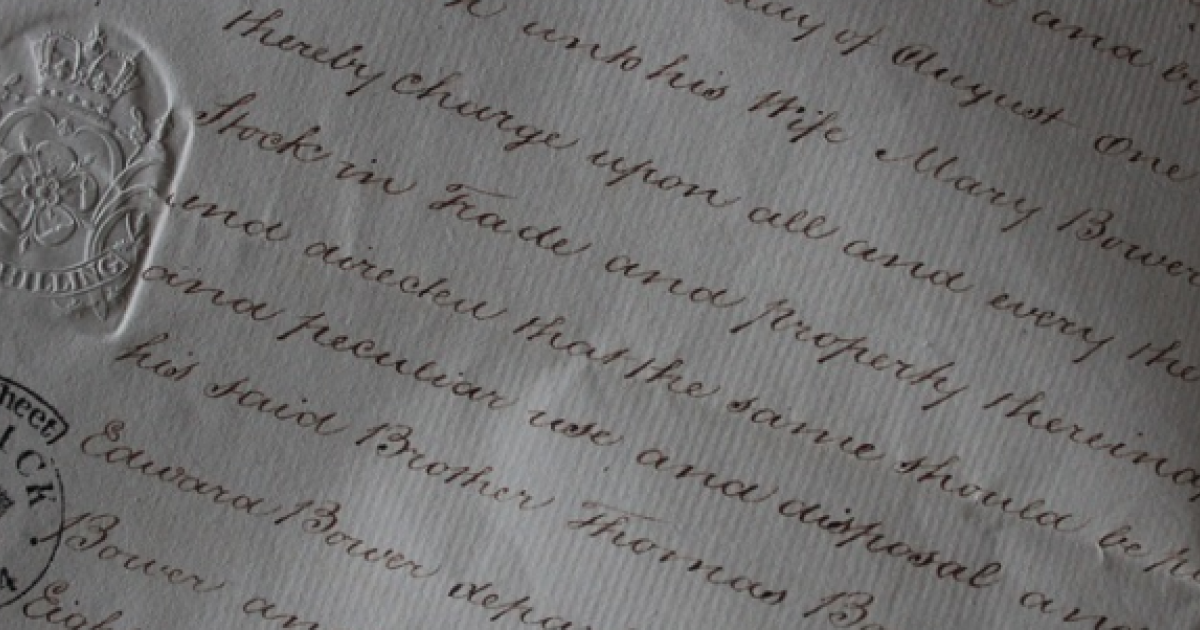 and by
day of August One
unto his Wife Mary Bower
thereby charge upon all and every the
Stock in Trade and property therein
and directed that the same should be
and peculiar use and disposal and
his said Brother Thomas
Edward Bower
Bower an
HILLING
heet
ICK